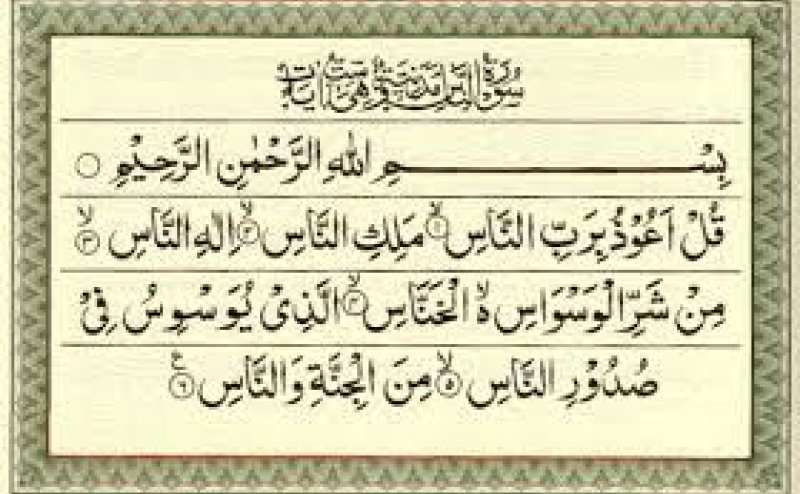 سُوْرَةُ النَّاسِ مَدَنِيَّةٌ وَّهِيَ سِتُّ اٰيَاتٍ
بِسْمِ اللهِ الرَّحْمٰنِ الرَّحِيْمِ ○
قُلْ اَعُوْذُ بِرَبِّ النَّاسِ ۙ﴿۱﴾ مَلِكِ النَّاسِ ۙ﴿۲﴾ اِلٰهِ النَّاسِ ۙ﴿۳﴾
مِنْ شَرِّ الْوَسْوَاسِ ۙ۬ الْخَنَّاسِ ۙ﴿۴﴾ الَّذِيْ يُوَسْوِسُ فِيْ
صُدُوْرِ النَّاسِ ۙ﴿۵﴾ مِنَ الْجِنَّةِ وَالنَّاسِ ﴿۶﴾ع